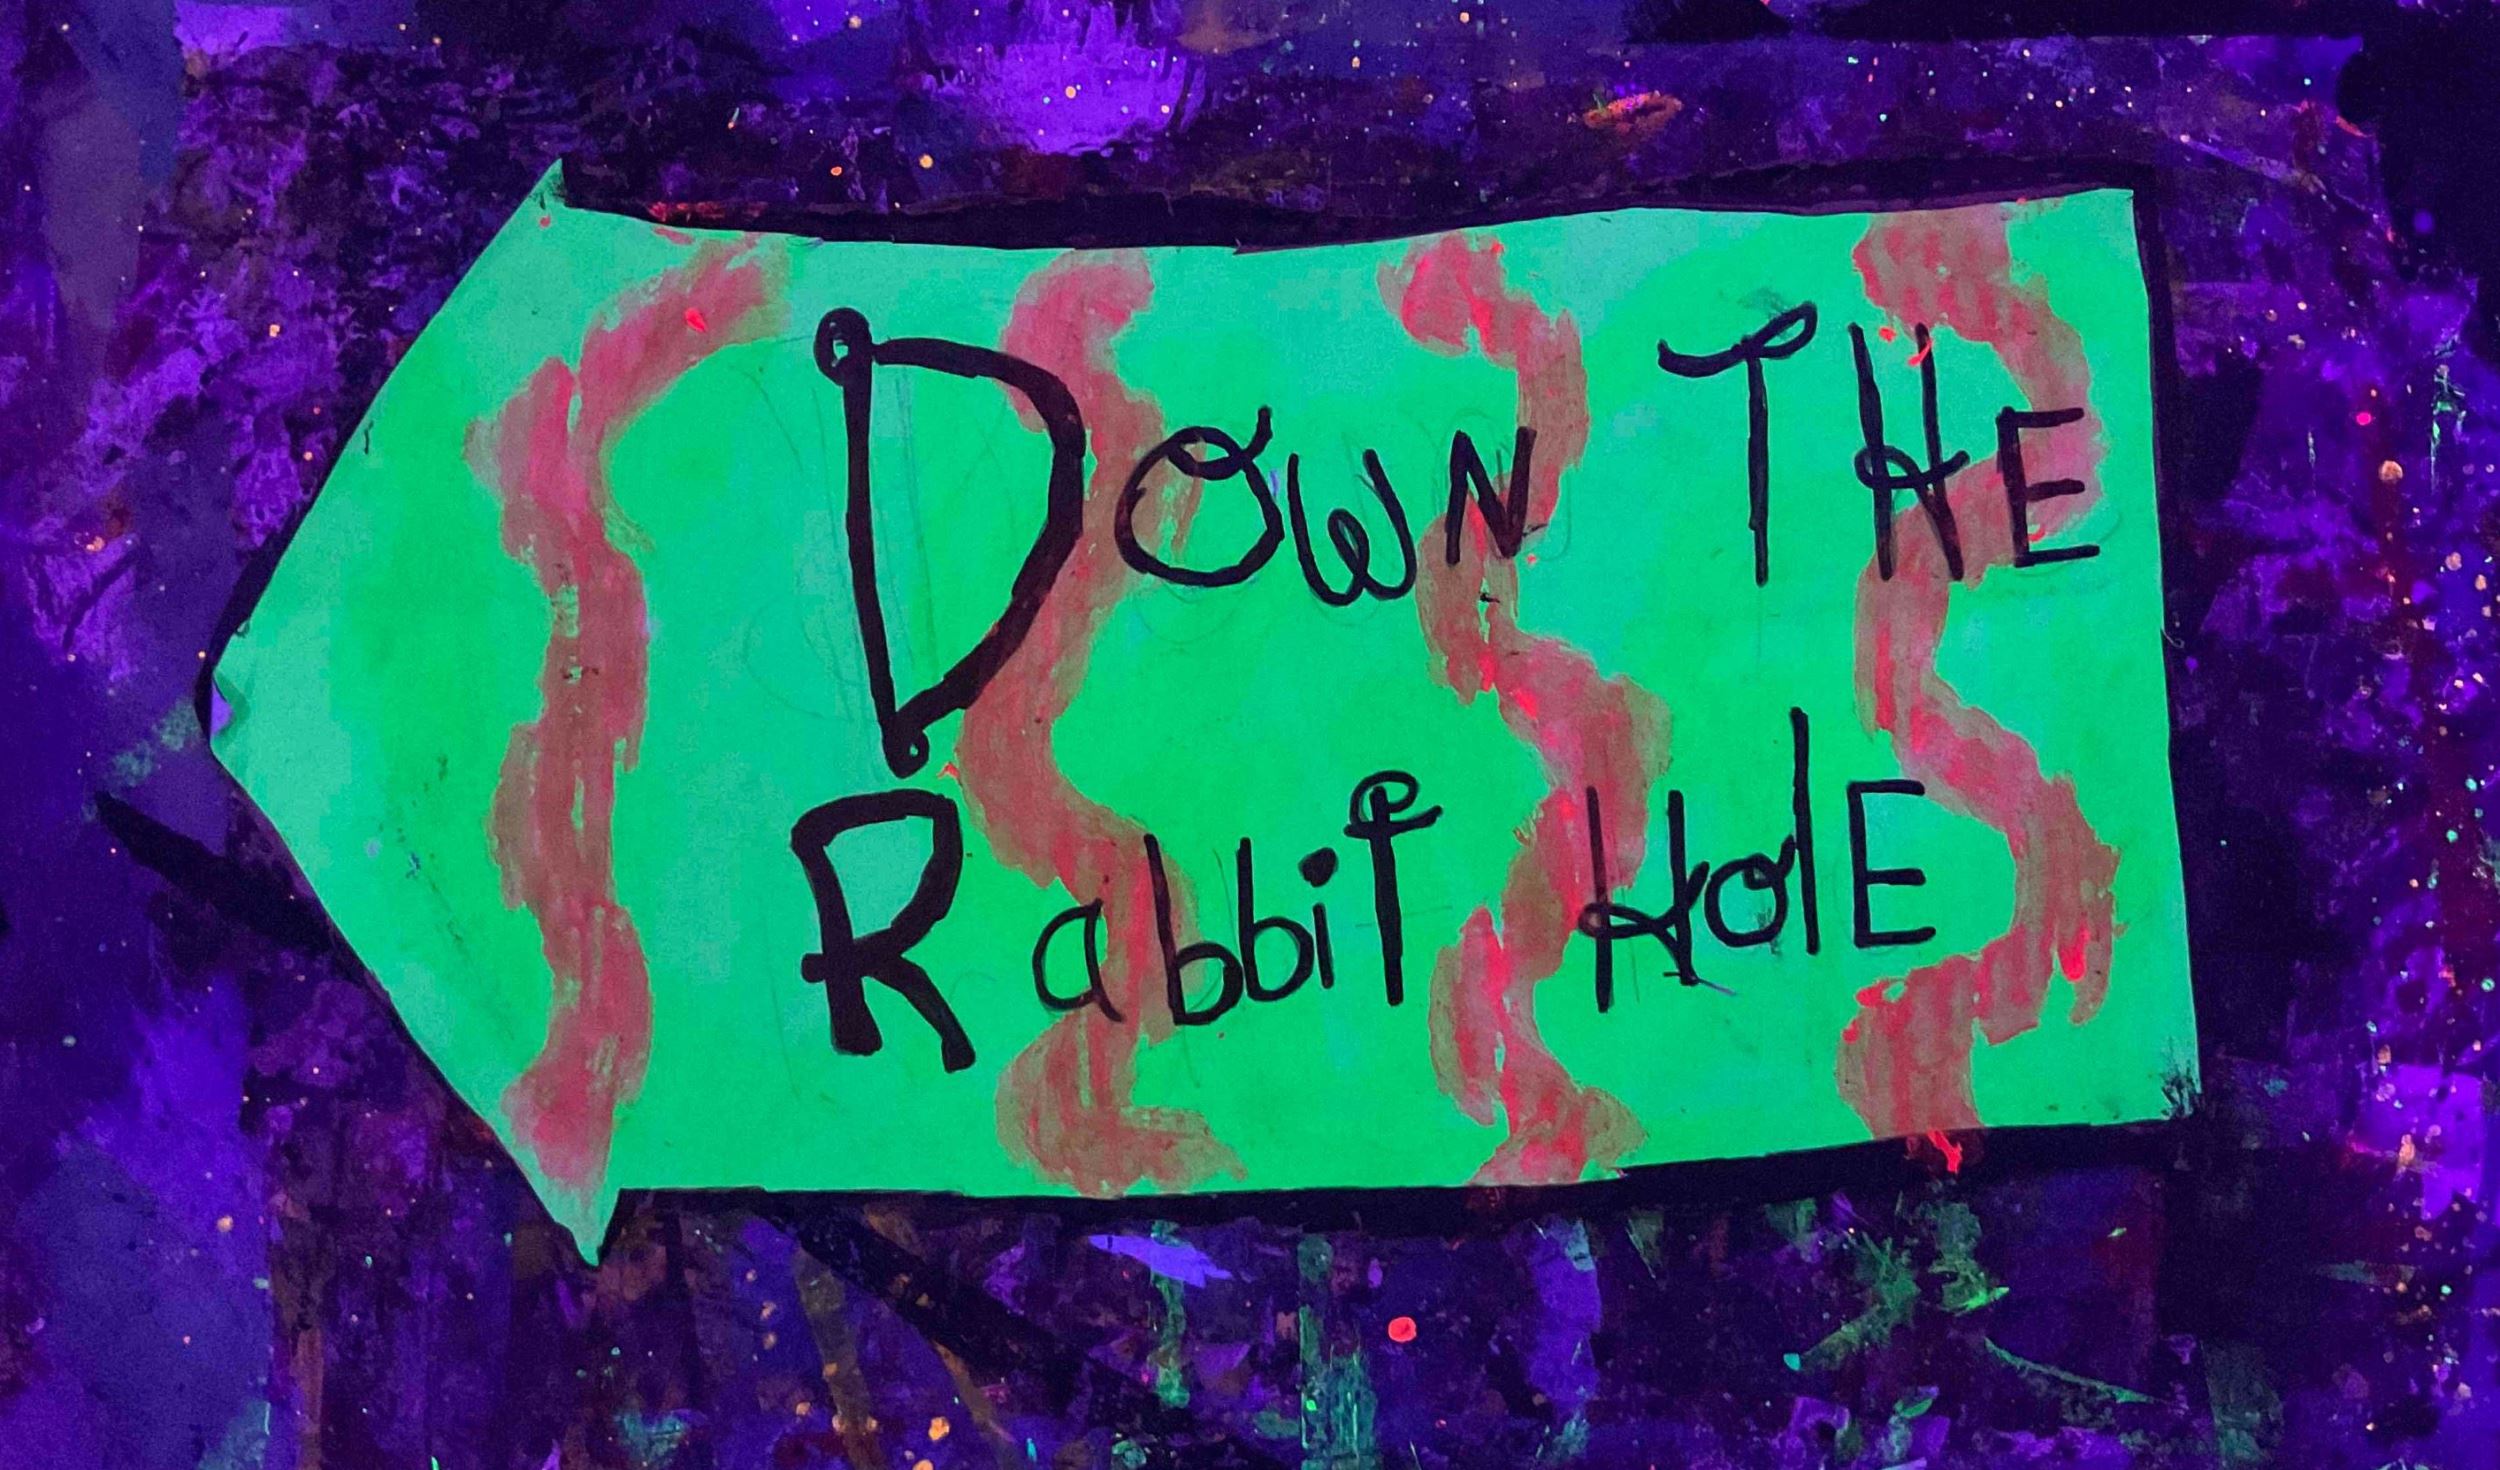 DOWN THE
RabbiT HolE